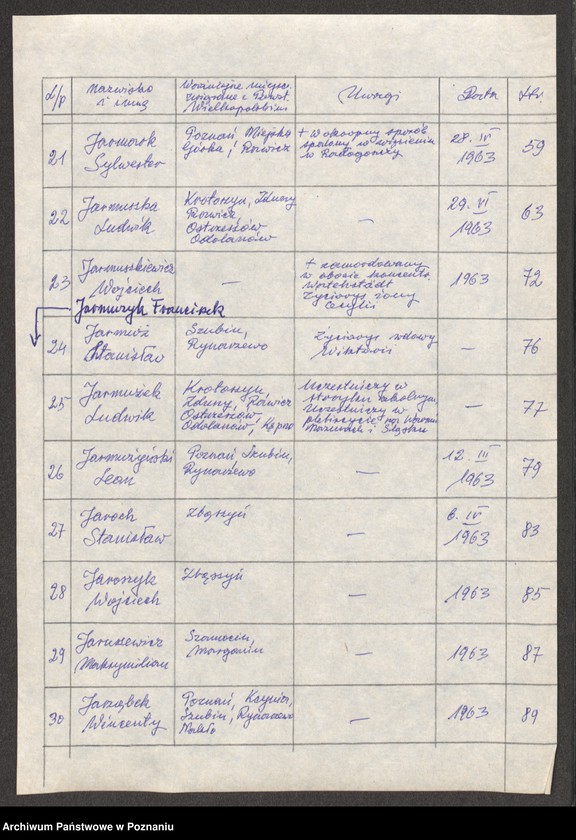 L/p
Nazwisko
i imię
Uwagi
Data
Str.
21
Jarmorsk
Sylwester
Poznań Miejska
Górka, Rawicz
+ w okropny sposób
spalony w więzieniu
w Radogoszczy
28. IV
1963
59
22
Jarmuszka
Ludwik
Krotoszyn, Zduny
Rawicz
Ostrzeszów
Odolanów
—
29. VI
1963
63
23
Jarmuszkiewicz
Wojciech
—
+ zamordowany
w obozie koncentr.
Życiorys żony
Cecylii
1963
72
Jarmuzyk Franciszek
24
Jarmuż
Stanisław
Szubin,
Rynarzewo
Życiorys wdowy
Wiktorii
—
76
25
Jarmużek
Ludwik
Krotoszyn,
Zduny, Rawicz
Ostrzeszów,
Odolanów, Kępno
Uczestniczy w
strajku szkolnym,
Uczestniczy w
plebiscycie na Warmii
Mazurach i Śląsku
—
77
26
Leon
Poznań Szubin,
Rynarzewo
—
12. III
1963
79
27
Jaroch
Stanisław
Zbąszyń
—
6. IV
1963
83
28
Jaroszyk
Wojciech
Zbąszyń
—
1963
85
29
Jaruszewicz
Maksymilian
Szamocin,
Margonin
—
1963
87
30
Jarząbek
Wincenty
Poznań, Kcynia,
Szubin, Rynarzewo
Nakło
—
1963
89
Archiwum Państwowe w Poznaniu